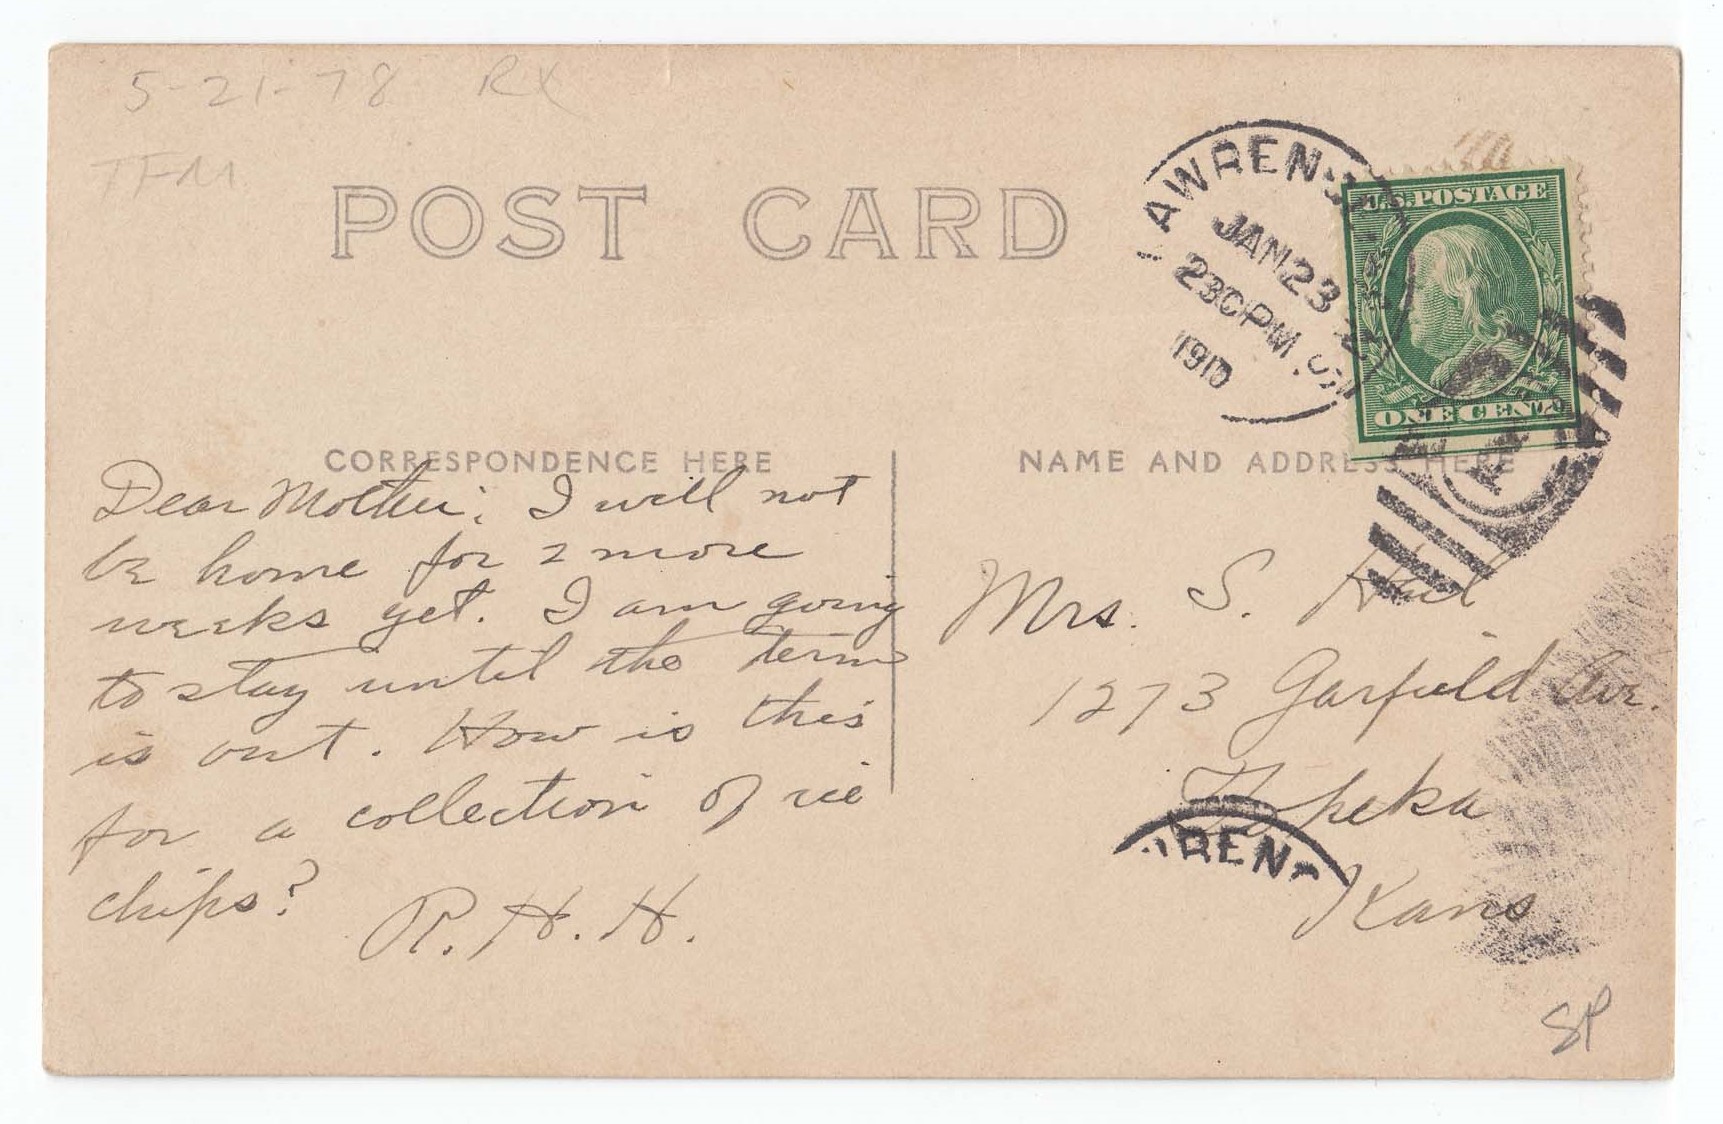 5-21-78 RX
TFM
POST CARD
LAWRENCE
JAN 23
230 PM
1910
U.S. POSTAGE
ONE CENT
CORRESPONDENCE HERE
NAME AND ADDRESS HERE
Dear Mother: I will not
be home for 2 more
weeks yet. I am going
to stay until the term
is out. How is this
for a collection of ice
chips?
R. H. H.
Mrs. S.
1273 Garfield Ave.
Topeka
Kans
SP